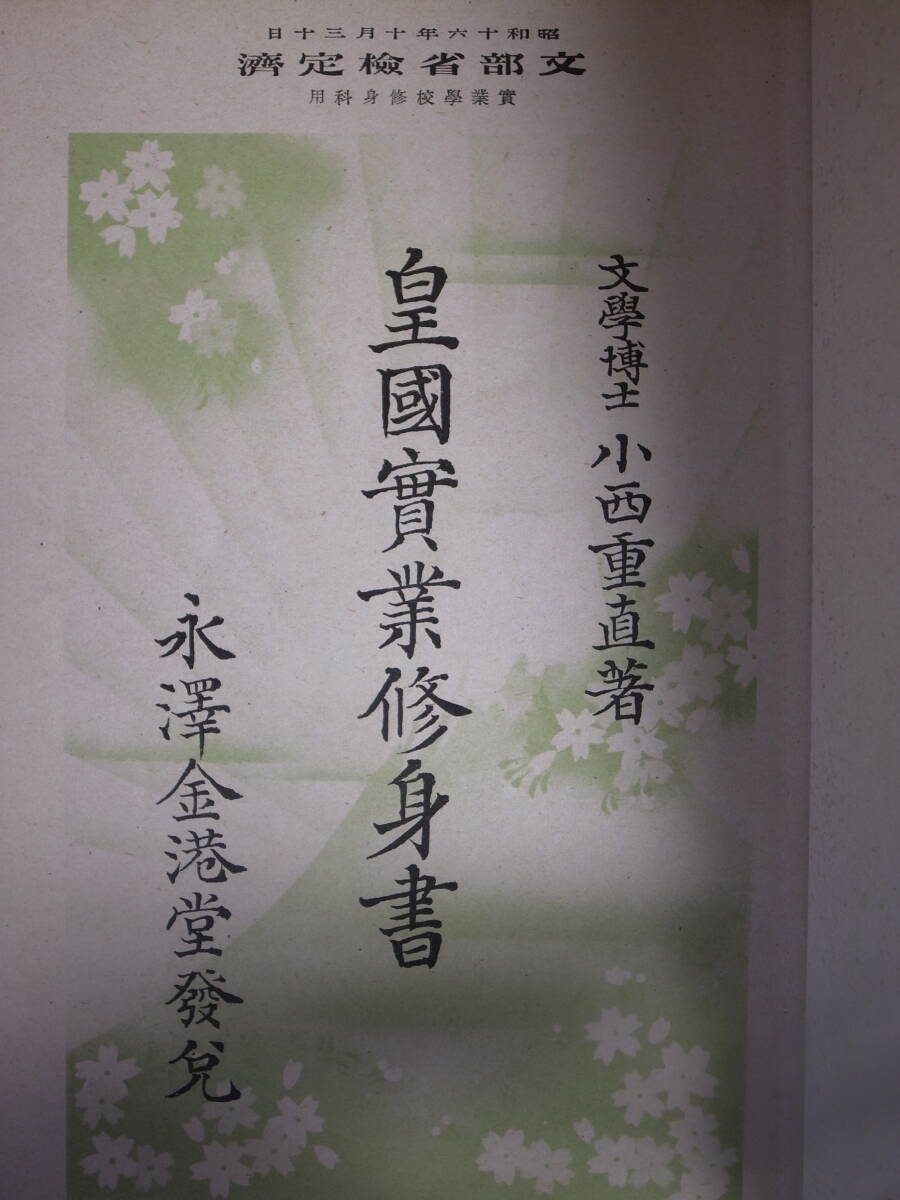 昭和十六年十月三十日
文部省檢定濟
實業學校修身科用
文學博士 小西重直著
皇國實業修身書
永澤金港堂發兌